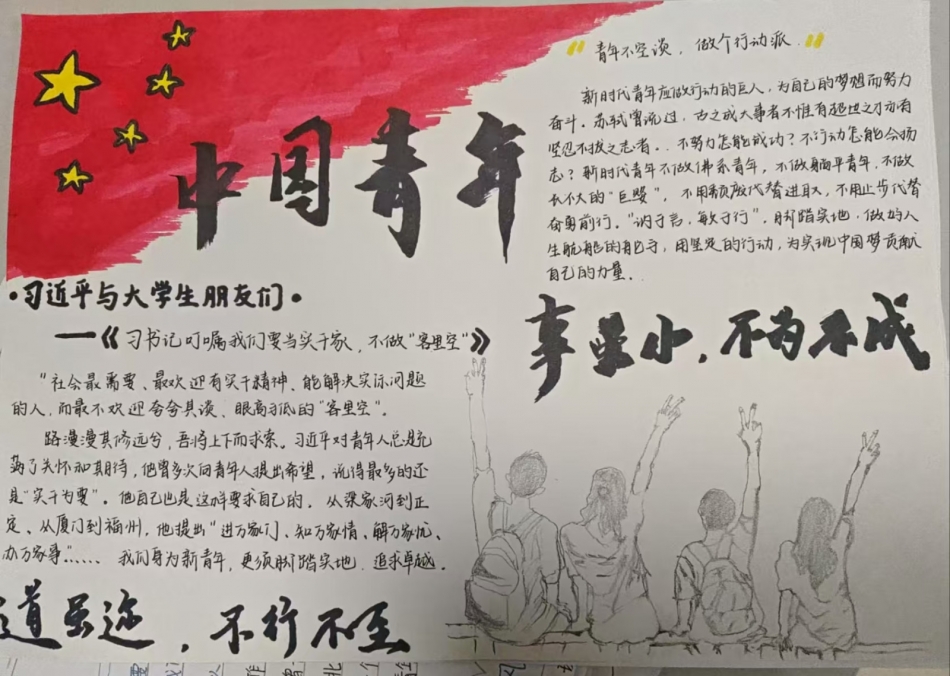 中国青年
"青年不空谈，做个行动派."
新时代青年应做行动的巨人，为自己的梦想而努力
奋斗。苏轼曾说过，古之成大事者不惟有超世之才亦有
坚忍不拔之志者。. 不努力怎能成功？不行动怎能会扬
志？新时代青年不做佛系青年，不做躺平青年，不做
长不大的"巨婴"，不用颓废代替进取，不用止步代替
奋勇前行。"讷于言，敏于行"，脚踏实地，做好人
生航船的舵手，用坚定的行动，为实现中国梦贡献
自己的力量．
·习近平与大学生朋友们·
——《习书记叮嘱我们要当实干家，不做"客里空"》
"社会最需要、最欢迎有实干精神、能解决实际问题
的人，而最不欢迎夸夸其谈、眼高手低的"客里空"。
路漫漫其修远兮，吾将上下而求索。习近平对青年人总是充
满了关怀和期待，他曾多次向青年人提出希望，说得最多的还
是"实干为要"。他自己也是这样要求自己的，从梁家河到正
定、从厦门到福州，他提出"进万家门、知万家情、解万家忧、
办万家事"…… 我们身为新青年，更须脚踏实地，追求卓越．
事虽小，不为不成
道虽迩，不行不至